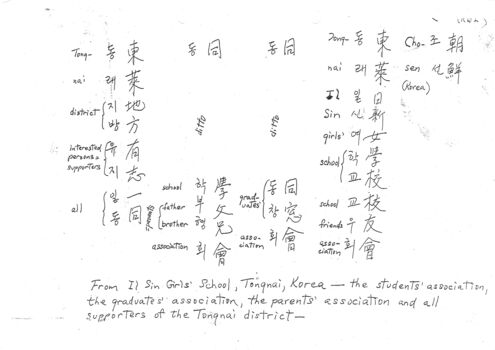 朝鮮
조선
Cho-
sen
(Korea)
東萊日新女學校校友會
동래일신여학교교우회
Tong-
nai
Il
Sin
girls'
school
school
friends
asso-
ciation
同
동
ditto
同窓會
동창회
grad-
uates'
asso-
ciation
同
동
ditto
學父兄會
학부형회
school
father
brother
parents
association
東萊地方有志一同
동래지방유지일동
Tong-
nai
district
interested
persons =
supporters
all
From Il Sin Girls' School, Tongnai, Korea — the students' association,
the graduates' association, the parents' association and all
supporters of the Tongnai district —